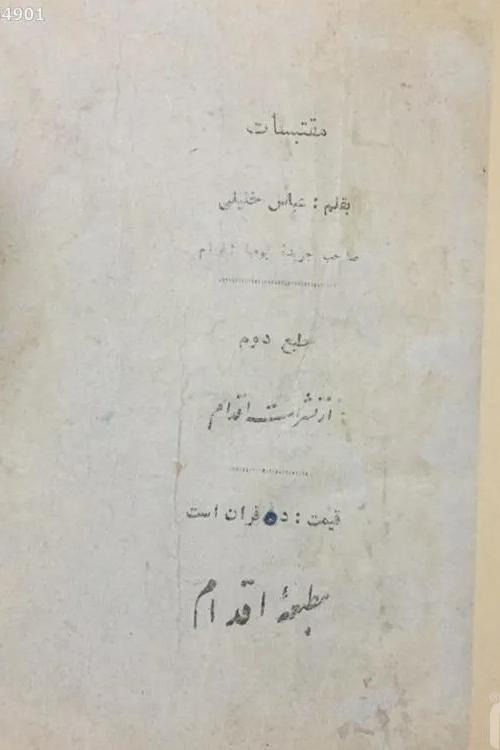 4901
مقتبسات
بقلم : عباس خلیلی
صاحب جریدهٔ یومیه اقدام
طبع دوم
از نشریات اقدام
قیمت : ده قران است
مطبعهٔ اقدام